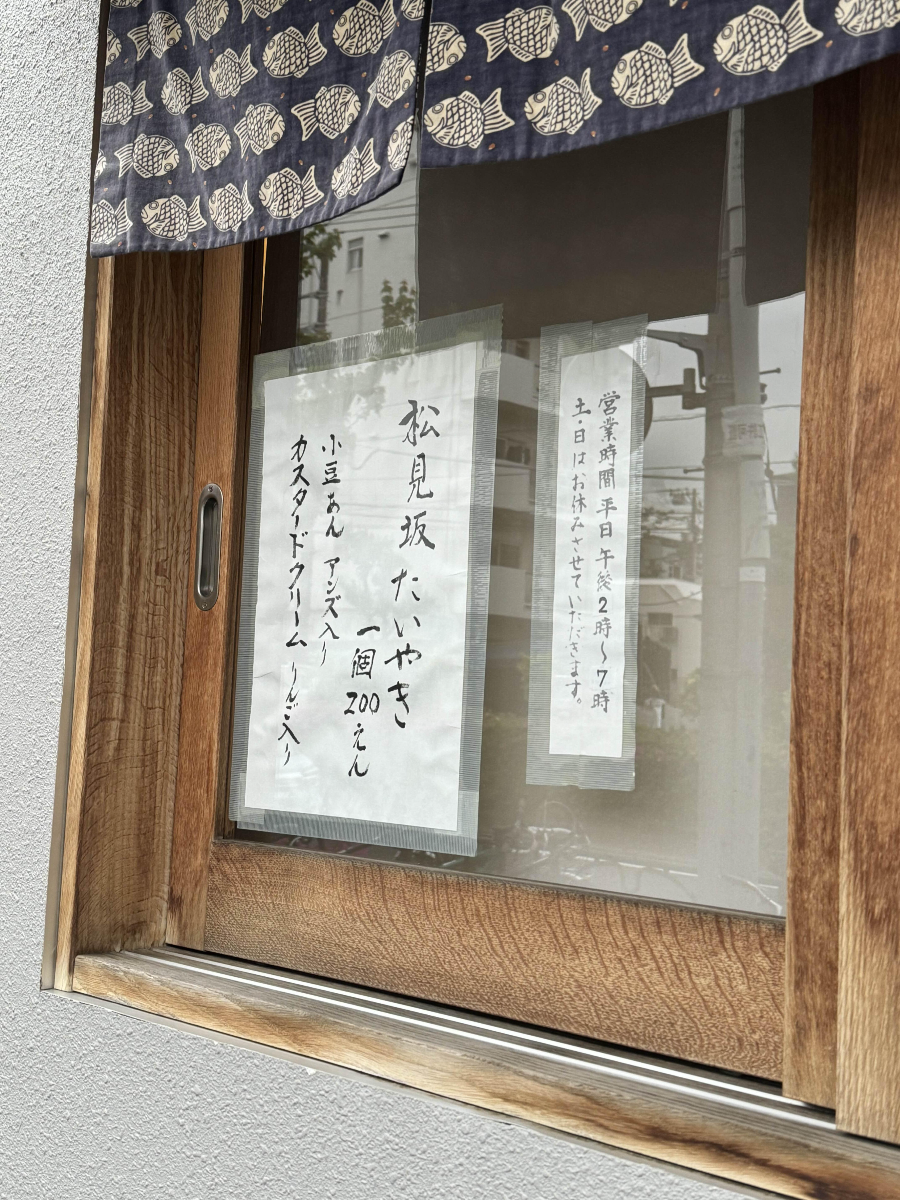 営業時間 平日 午後2時〜7時
土・日はお休みさせていただきます。
松見坂 たいやき
一個 200えん
小豆あん アンズ入り
カスタードクリーム りんご入り